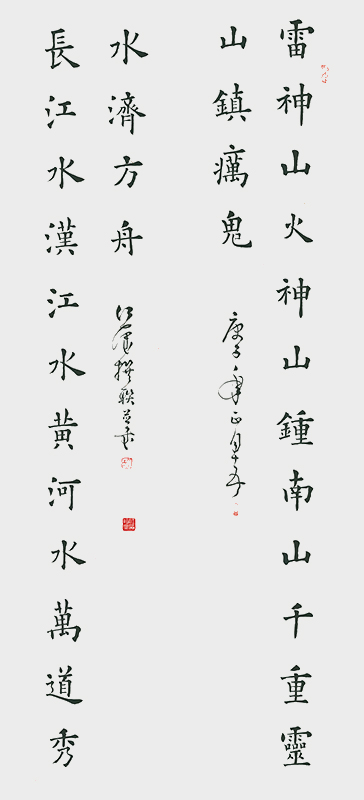 雷神山火神山鍾南山千重靈
山鎮癘鬼
庚子年正月十五
長江水漢江水黄河水萬道秀
水濟方舟
撰聯並書